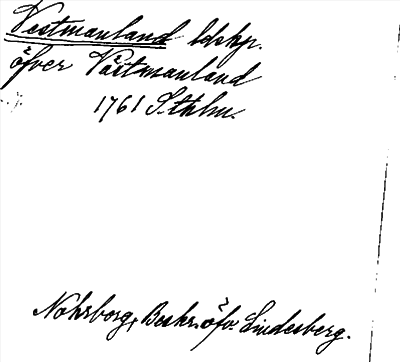 Vestmanland ldskp.
öfver Västmanland
1761 S.thlm.
Nohrborg, Beskr. öfv Lindesberg.